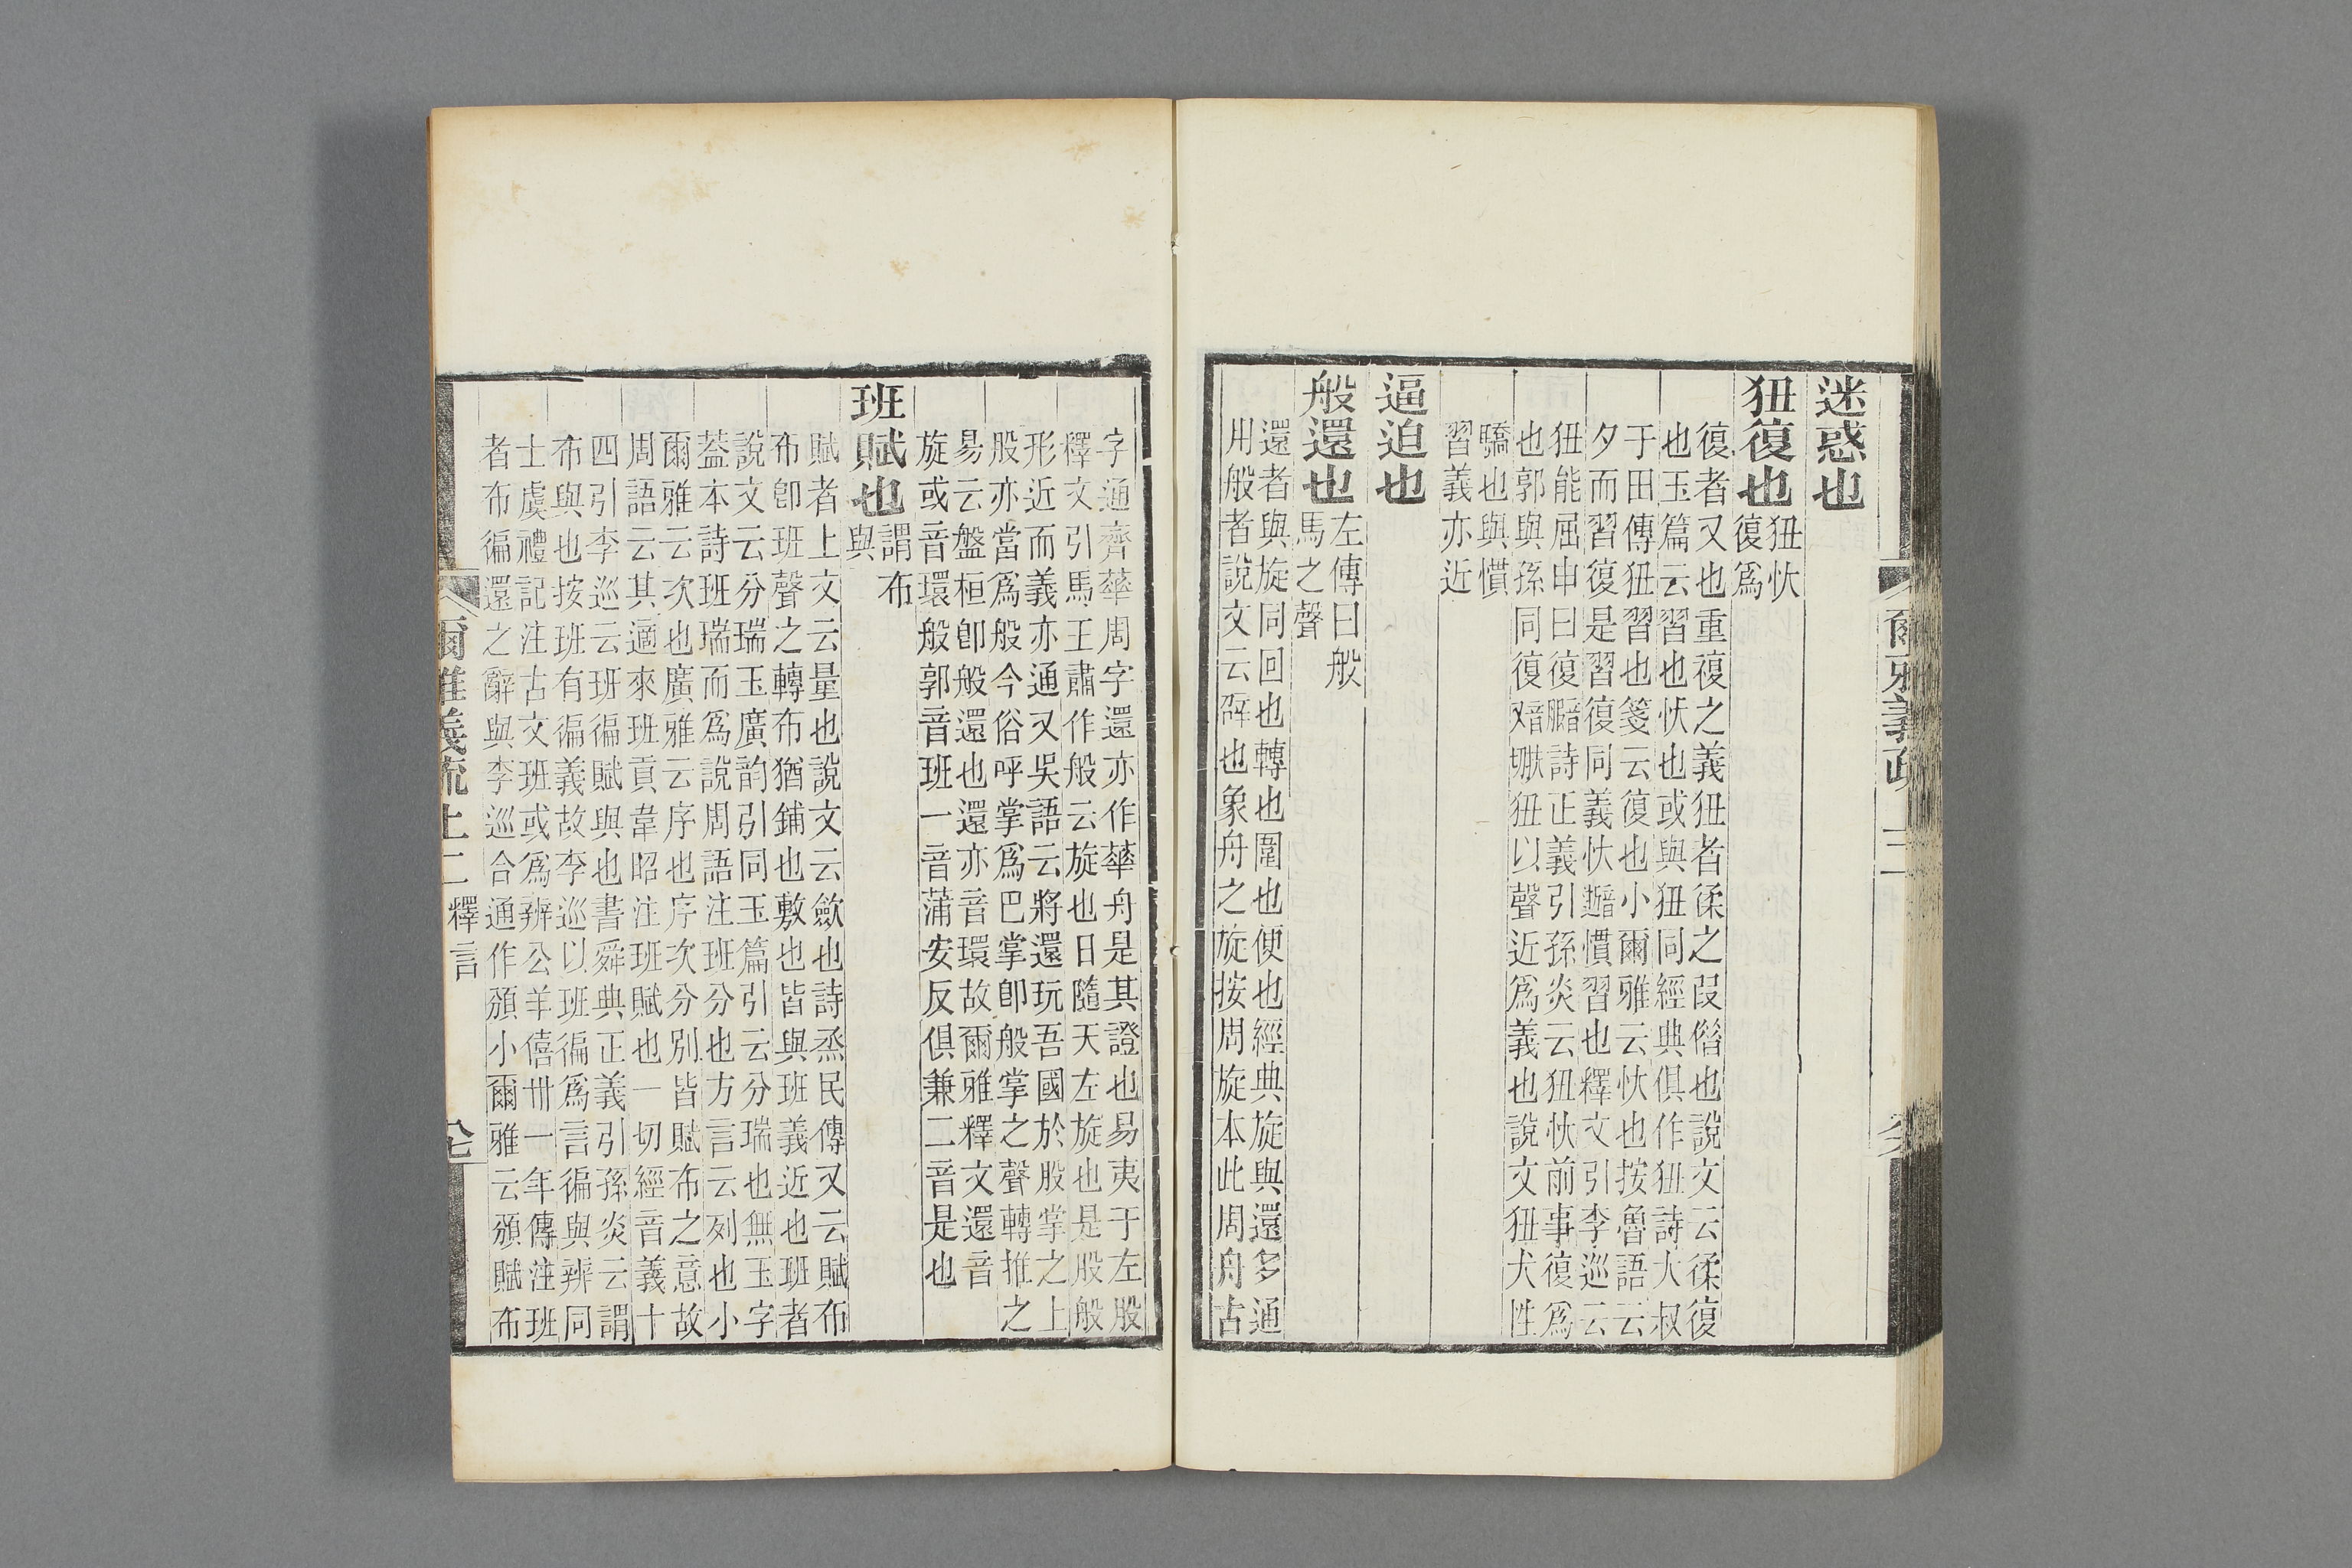 迷惑也
狃復也
狃忕
復爲
復者又也重複之義狃者徎之叚偕也說文云徎復
也玉篇云習也忕也或與狃同經典俱作狃詩大叔
于田傳狃習也箋云復也小爾雅云忕也按魯語云
夕而習復是習復同義忕慣習也釋文引李巡云
狃能屈申曰復詩正義引孫炎云狃忕前事復爲
也郭與孫同復狃以聲近爲義也說文狃犬性
驕也與慣
習義亦近
逼迫也
般還也
左傳曰般
馬之聲
還者與旋同回也轉也圍也便也經典旋與還多通
用般者說文云辟也象舟之旋按周旋本此周舟古
字通齊華周字還亦作華舟是其證也易夷于左股
釋文引馬王肅作般云旋也日隨天左旋也是股般
形近而義亦通又吳語云將還玩吾國於股掌之上
股亦當爲般今俗呼掌爲巴掌卽般掌之聲轉推之
易云盤桓卽般還也還亦音環故爾雅釋文還音
旋或音環般郭音班一音蒲安反俱兼二音是也
班賦也
謂布
與
賦者上文云量也說文云斂也詩烝民傳又云賦布
布卽班聲之轉布猶鋪也敷也皆與班義近也班者
說文云分瑞玉廣韵引同玉篇引云分瑞也無玉字
葢本詩班瑞而爲說周語注班分也方言云列也小
爾雅云次也廣雅云序也序次分別皆賦布之意故
周語云其適來班貢韋昭注班賦也一切經音義十
四引李巡云班徧賦與也書舜典正義引孫炎云謂
布與也按班有徧義故李巡以班徧爲言徧與辨同
士虞禮記注古文班或爲辨公羊僖卅一年傳注班
者布徧還之辭與李巡合通作頒小爾雅云頒賦布
爾雅義疏上二釋言